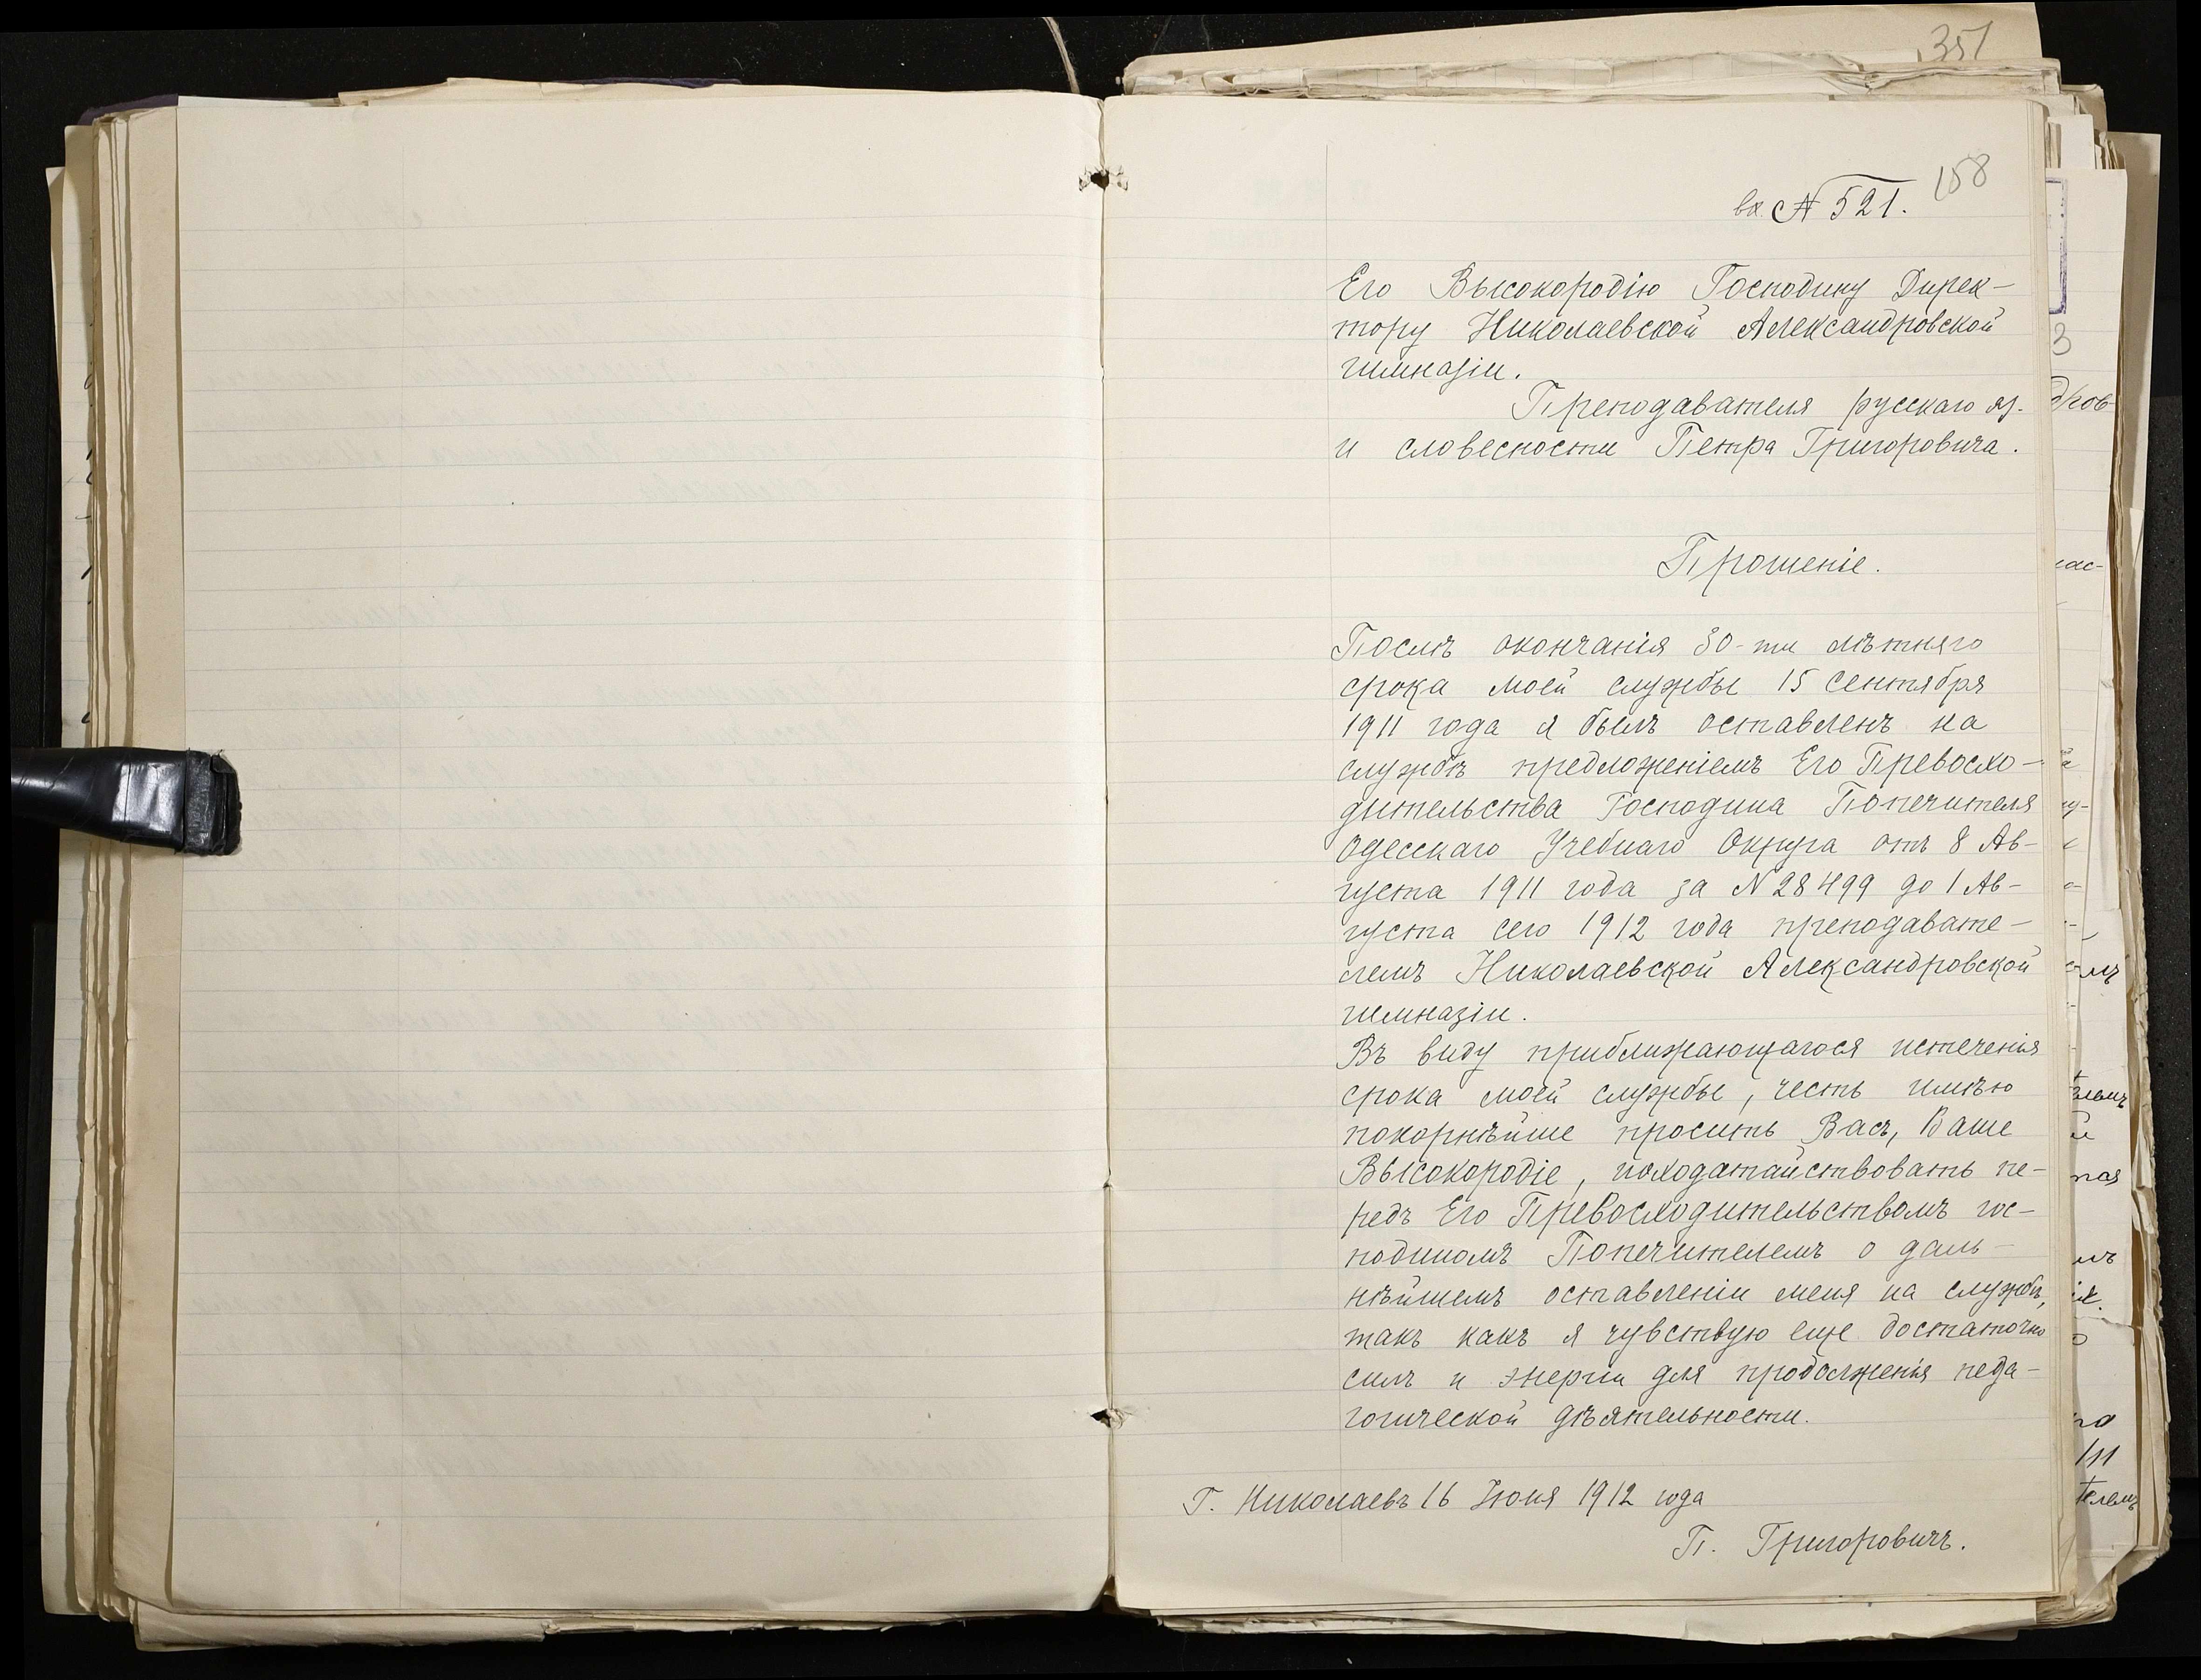 351
158
вх. № 521.
Его Высокородію Господину Дирек-
тору Николаевской Александровской
гимназіи.
Преподавателя русскаго яз.
и словесности Петра Григоровича.
Прошеніе.
Послѣ окончанія 30-ти лѣтняго
срока моей службы 15 Сентября
1911 года я былъ оставленъ на
службѣ предложеніемъ Его Превосхо-
дительства Господина Попечителя
Одесскаго Учебнаго Округа отъ 8 Ав-
густа 1911 года за N 28499 до 1 Ав-
густа сего 1912 года преподавате-
лемъ Николаевской Александровской
гимназіи.
Въ виду приближающагося истеченія
срока моей службы, честь имѣю
покорнѣйше просить Васъ, Ваше
Высокородіе, походатайствовать пе-
редъ Его Превосходительствомъ гос-
подиномъ Попечителемъ о даль-
нѣйшемъ оставленіи меня на службѣ,
такъ какъ я чувствую еще достаточно
силъ и энергіи для продолженія педа-
гогической дѣятельности.
Г. Николаевъ 16 Іюня 1912 года
П. Григоровичъ.